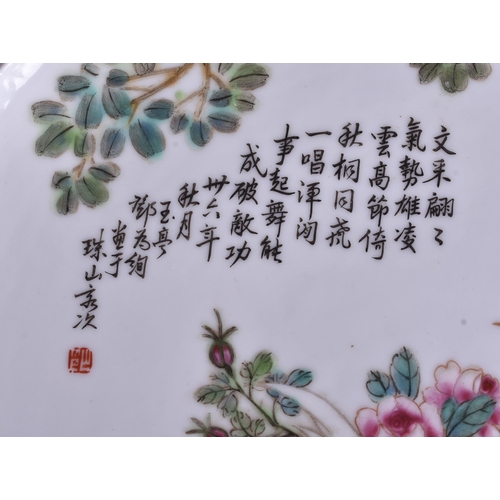 文采翩々
氣勢雄凌
雲高節倚
秋桐同飛
一唱渾閑
事起舞能
成破敵功
卅六年
秋月
玉亭
鄧為絢
畫于
珠山客次